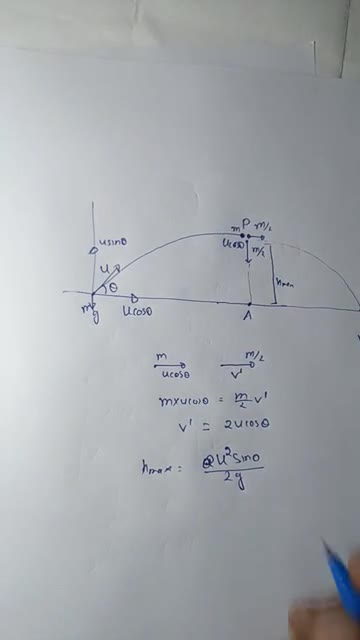 usinθ
u
θ
m
g
ucosθ
m P m/2
ucosθ
m/2
hmax
A
m m/2
ucosθ v'
m×ucosθ = m/2 v'
v' = 2ucosθ
hmax = u²sinθ/2g